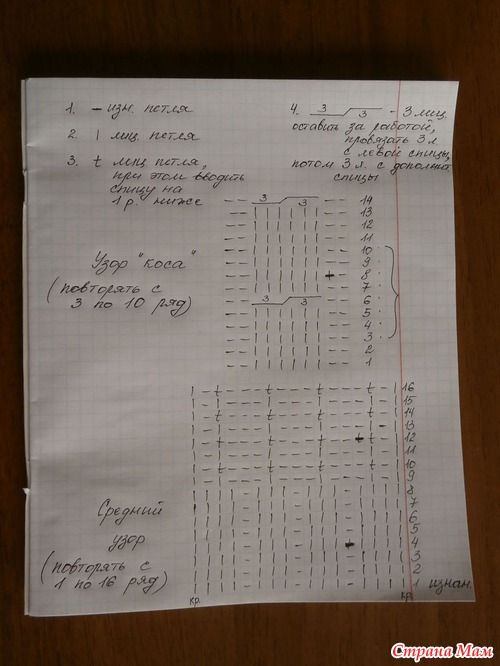 1. — изн. петля
2. | лиц. петля
3. t лиц петля,
при этом вводить
спицу на
1 р. ниже
4. 3 3 - 3 лиц.
оставить за работой,
провязать 3 л.
с левой спицы,
потом 3 л. с дополнит
спицы
Узор "коса"
(повторять с
3 по 10 ряд)
3 3 14
13
12
11
10
9
8
7
3 3 6
5
4
3
2
1
| t t t t | 16
15
t t t t 14
13
t t t t 12
11
t t t t 10
9
8
7
6
5
4
3
2
1 изнан.
Средний
узор
(повторять с
1 по 16 ряд)
кр. кр.
Страна Мам